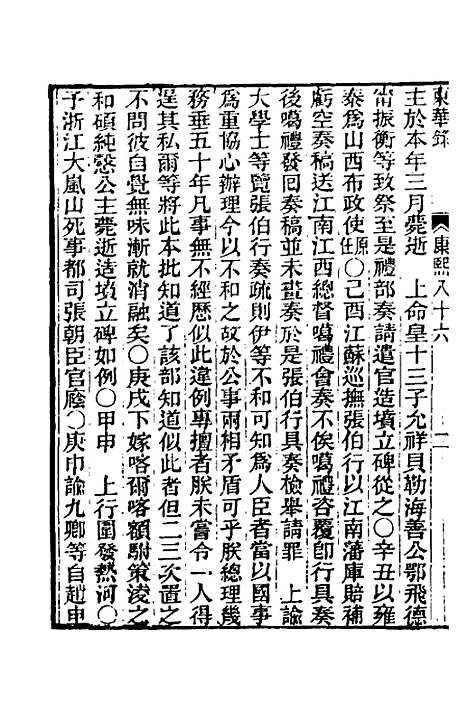 東華錄 康熙八十六 二
主於本年三月薨逝　上命皇十三子允祥貝勒海善公鄂飛德
甯振衡等致祭至是禮部奏請遣官造墳立碑從之○辛丑以雍
泰為山西布政使原任○己酉江蘇巡撫張伯行以江南藩庫賠補
虧空奏稿送江南江西總督噶禮會奏不俟噶禮咨覆卽行具奏
後噶禮發回奏稿並未畫奏於是張伯行具奏檢舉請罪　上諭
大學士等覽張伯行奏疏則伊等不和可知為人臣者當以國事
為重協心辦理今以不和之故於公事兩相矛盾可乎朕總理幾
務垂五十年凡事無不經歷似此違例專擅者朕未嘗令一人得
逞其私爾等將此本批知道了該部知道似此者但二三次置之
不問彼自覺無味漸就消融矣○庚戌下嫁喀爾喀額駙策淩之
和碩純愨公主薨逝造墳立碑如例○甲申　上行圍發熱河○
子浙江大嵐山死事都司張朝臣官廕○庚申諭九卿等自趙申